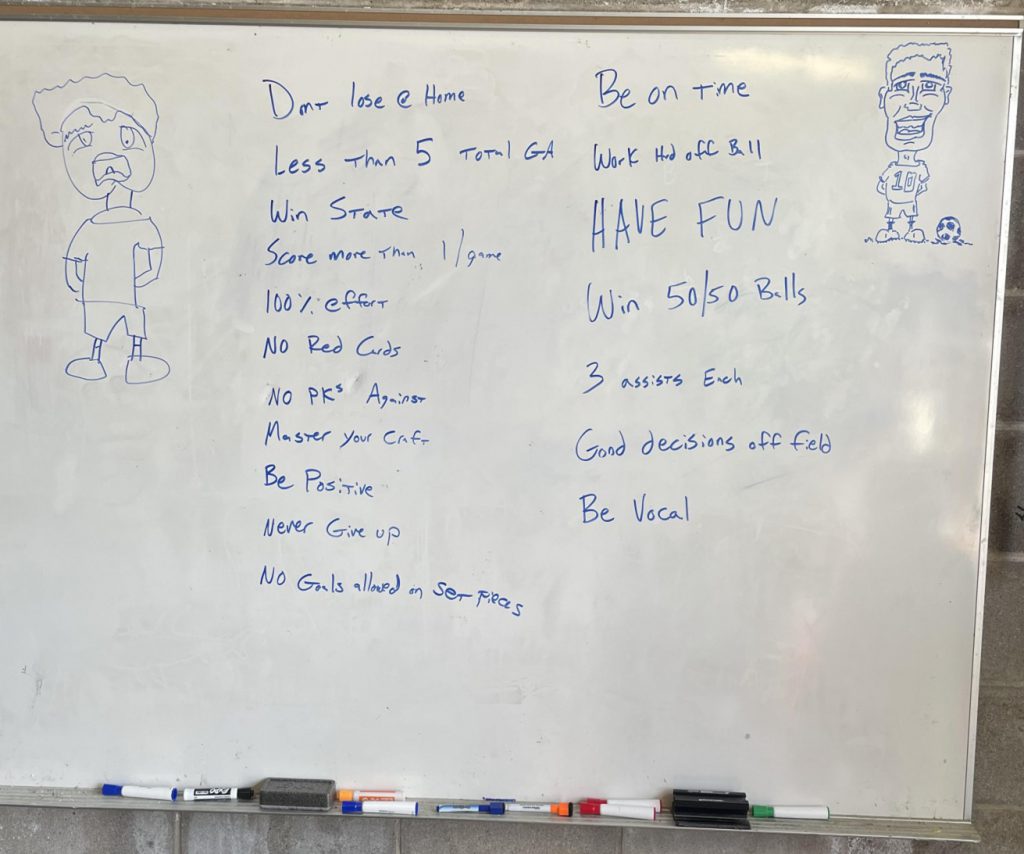 Dont lose @ Home
Less Than 5 Total GA
Win State
Score more Than 1/game
100% effort
No Red Cards
No PKs Against
Master your Craft
Be Positive
Never Give up
No Goals allowed on Set Pieces
Be on Time
Work Hard off Ball
HAVE FUN
Win 50/50 Balls
3 assists Each
Good decisions off field
Be Vocal
10